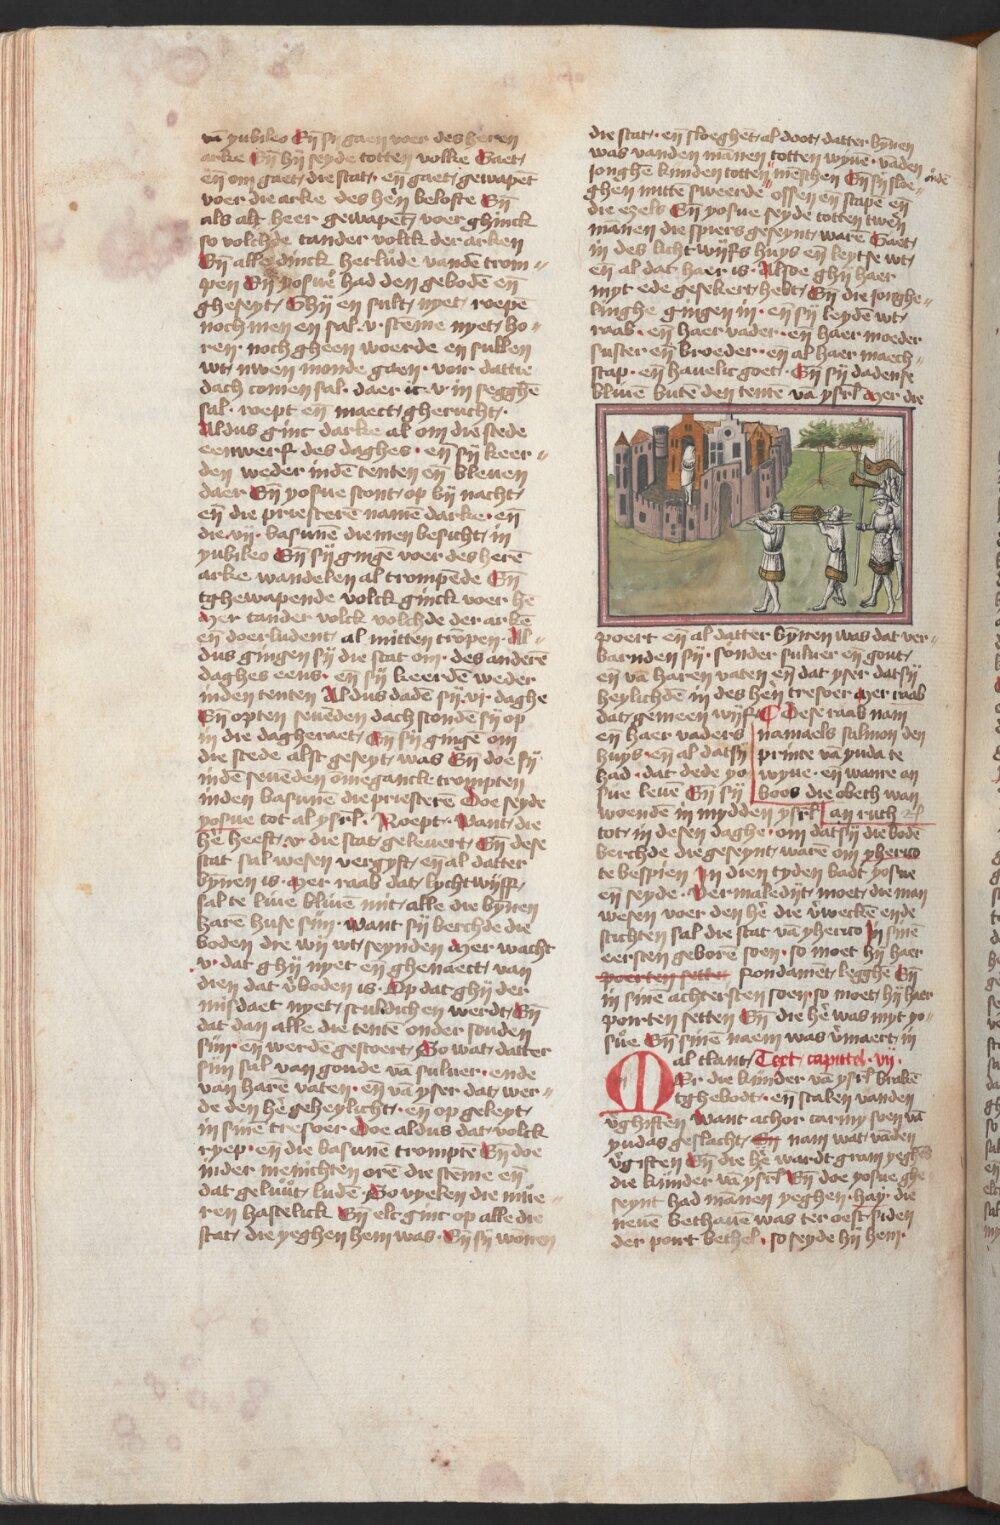 vā yubileo Eñ sy gaen voer des heren
arke Eñ hij seyde totten volke Gaet
eñ om gaet die stat eñ gaet gewapēt
voer die arke des hēn beloste Eñ
als alt heer gewapēt voer ghinck
so volchde tander volck der arken
Eñ alle dinck herlude vandē trom
pen Eñ yosue had den gebodē eñ
gheseyt Ghij en sult nyet roepē
noch men en sal v steme nyet ho
ren noch gheen woerde en sullen
wt uwen monde gaen voir dattie
dach comen sal daer ic v in segghē
sal roept eñ maect gherucht
Aldus ginc darke al om die stede
eenwerf des daghes eñ sij keer
den weder indē tenten eñ bleven
daer Eñ yosue stont op bij nacht
eñ die priesterē namē darke eñ
die vij basunē diemen besicht in
yubileo Eñ sij gingē voer des herē
arke wandelen al trompēde Eñ
tghewapende volck ginck voer hē
Mer tander volck volchde der arkē
eñ doerludent al mitten trōpen Al
dus gingen sij die stat om des anderē
daghes eens eñ sij keerdē weder
inden tenten Aldus dadē sij vi daghe
Eñ opten sevēden dach stondē sij op
in die dagheraet Eñ sij gingē om
die stede alst geseyt was Eñ doe sij
indē sevedē ōmeganck trompten
inden basunē die priesterē Doe seyde
yosue tot al ysrl Roept Want die
hē heeft v die stat gelevert Eñ dese
stat sal wesen vergyft eñ al datter
bȳnen is Mer raab dat lycht wijff
sal te live blivē mit alle die bȳnen
harē huse sijn want sij berchde die
boden die wij wt seynden Mer wacht
v dat ghij nyet eñ ghenaect van
dien dat v̄boden is Op dat ghij der
misdaet nyet sculdich en werdt Eñ
dat dan alle die tentē onder sonden
sijn eñ werdē gestoert So wat datter
sijn sal van goude vā sulver ende
van harē vaten eñ vā yser dat wer
de den hē geheylicht eñ op geleyt
in sinē tresoer Doe aldus dat volck
ryep eñ die basunē trompte Eñ doe
inder menichten orē die steme eñ
dat geluut ludē So vyelen die mue
ren hastelick Eñ elc ginc op alle die
stat die yeghen hem was Eñ sij wonen
die stat eñ sloeghet al doot datter bȳnen
was vanden mānen totten wyuē vadē
jonghē kinden totten mēschen Eñ sij sloe oude
ghen mitte sweerde ossen eñ scape eñ
die ezels Eñ yosue seyde totten twen
mānen die spiers geseynt warē Gaet
in des licht wijfs huys eñ leytse wt
eñ al dat haer is Alsoe ghij haer
myt ede gesekert hebt Eñ die jonghe
linghe gingen in eñ sij leydē wt
raab eñ haer vader eñ haer moeder
suster eñ broeder eñ al haer maech
scap eñ havelic goet Eñ sij dadense
blivē butē den tentē vā ysrl Mer die
poert eñ al datter bȳnen was dat ver
barnden sij sonder sulver eñ gout
eñ vā haren vaten eñ dat yser dat sij
heylichdē in des hēn tresoer Mer raab
dat gemeen wijf
en haer vaders
huys eñ al dat sij
had dat dede yo
sue levē Eñ sij
Dese raab nam
namaels salmon den
prince vā yuda te
wyve eñ wanre an
boos die obeth wan
an ruth
woendē in mydden ysrl
tot in desen daghe om dat sij die bodē
berchde die geseynt warē om yherico
te bespien In dien tyden badt yosue
eñ seyde Vermaledijt moet die man
wesen voer den hē die v̄weckē ende
stichten sal die stat vā yherico In sinē
eersten geborē soen so moet hij haer
poerten sette fondamēt legghē Eñ
in sinē achtersten soen so moet hij haer
poorten setten Eñ die hē was myt yo
sue Eñ sinē naem was v̄maert in
al tlant Text capittel vij
Mer die kinder vā ysrl brakē
tghebodt eñ stalen vanden
v̄ghiften Want achor carmy soen vā
yudas geslacht Eñ nam wat vaden
v̄giften Eñ die hē wardt gram yeghē
die kinder vā ysrl Eñ doe yosue ghe
seynt had mānen yeghen hay die
nevē bethavē was ter oest siden
der port bethel so seyde hij hem